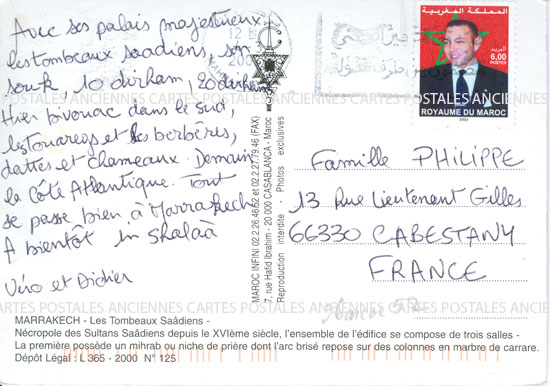 Avec ses palais majestueux
les tombeaux saadiens, son
souk, 10 dirham, 20 dirham
Hier bivouac dans le sud,
les touaregs et les berbères,
dattes et chameaux. Demain
la Côte Atlantique. Tout
se passe bien à Marrakech
A bientôt in shalaà
Véro et Didier
MAROC INFINI 02.2.26.46.52 et 02.2.27.79.46 (FAX)
7, rue Hafid Ibrahim - 20 000 CASABLANCA - Maroc
Reproduction interdite - Photos exclusives
المملكة المغربية
البريد
6,00
POSTES
ROYAUME DU MAROC
2002
Famille PHILIPPE
13 Rue Lieutenant Gilles
66330 CABESTANY
FRANCE
CARTES POSTALES ANCIENNES CARTES POSTALES ANCIENNES CARTES POSTALES
POSTALES ANCIENNES CARTES POSTALES ANCIENNES CARTES POSTALES
MARRAKECH - Les Tombeaux Saâdiens -
Nécropole des Sultans Saâdiens depuis le XVIème siècle, l'ensemble de l'édifice se compose de trois salles -
La première possède un mihrab ou niche de prière dont l'arc brisé repose sur des colonnes en marbre de carrare.
Dépôt Légal : L 365 - 2000 N° 125